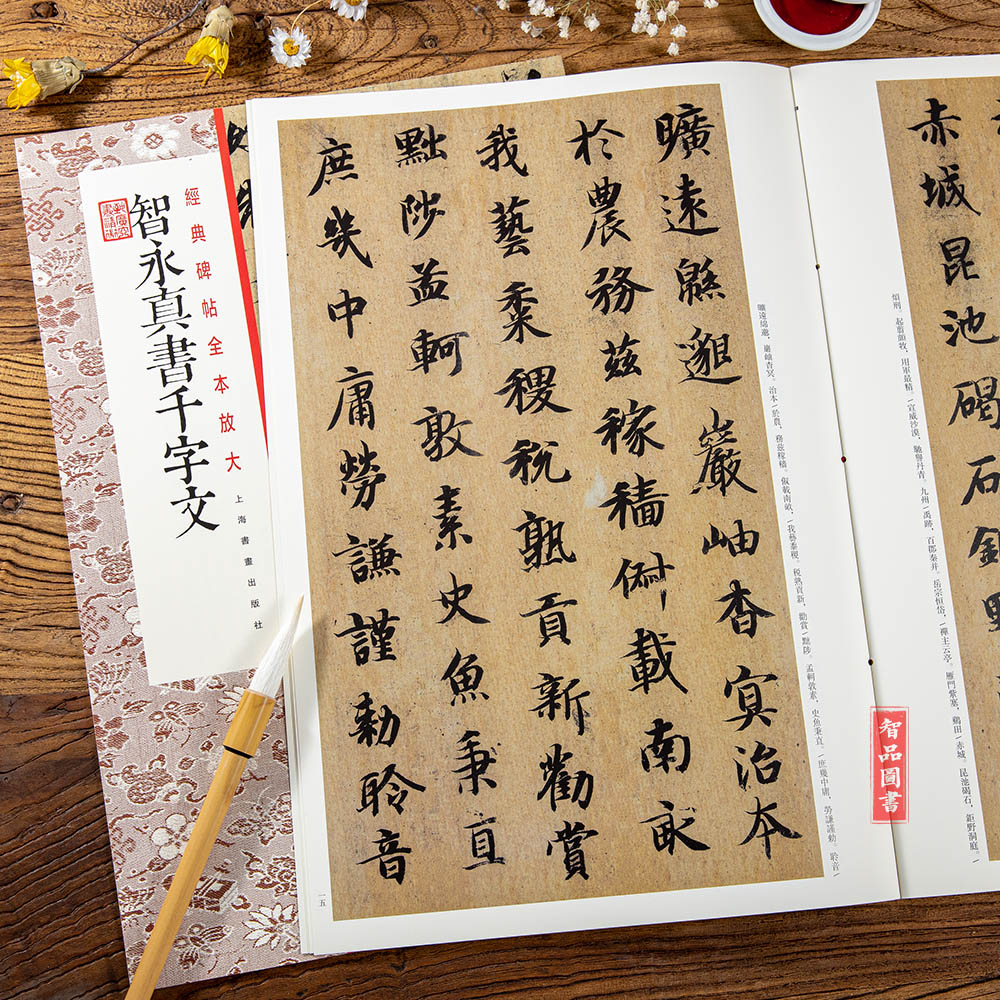 經典碑帖全本放大
智永真書千字文
上海書畫出版社
赤城昆池碣石鉅野
煩刑。起翦頗牧,用軍最精。/宣威沙漠,馳譽丹青。九州/禹跡,百郡秦并。岳宗恒岱,/禪主云亭。雁門紫塞,鷄田/赤城。昆池碣石,鉅野洞庭。/
智品圖書
曠遠綿邈,巖岫杳冥。治本/於農,務茲稼穡。俶載南畝,/我藝黍稷。稅熟貢新,勸賞/黜陟。孟軻敦素,史魚秉直。/庶幾中庸,勞謙謹勑。聆音/
曠遠緜邈巖岫杳冥治本
於農務茲稼穡俶載南畝
我藝黍稷稅熟貢新勸賞
黜陟孟軻敦素史魚秉直
庶幾中庸勞謙謹勑聆音
一五